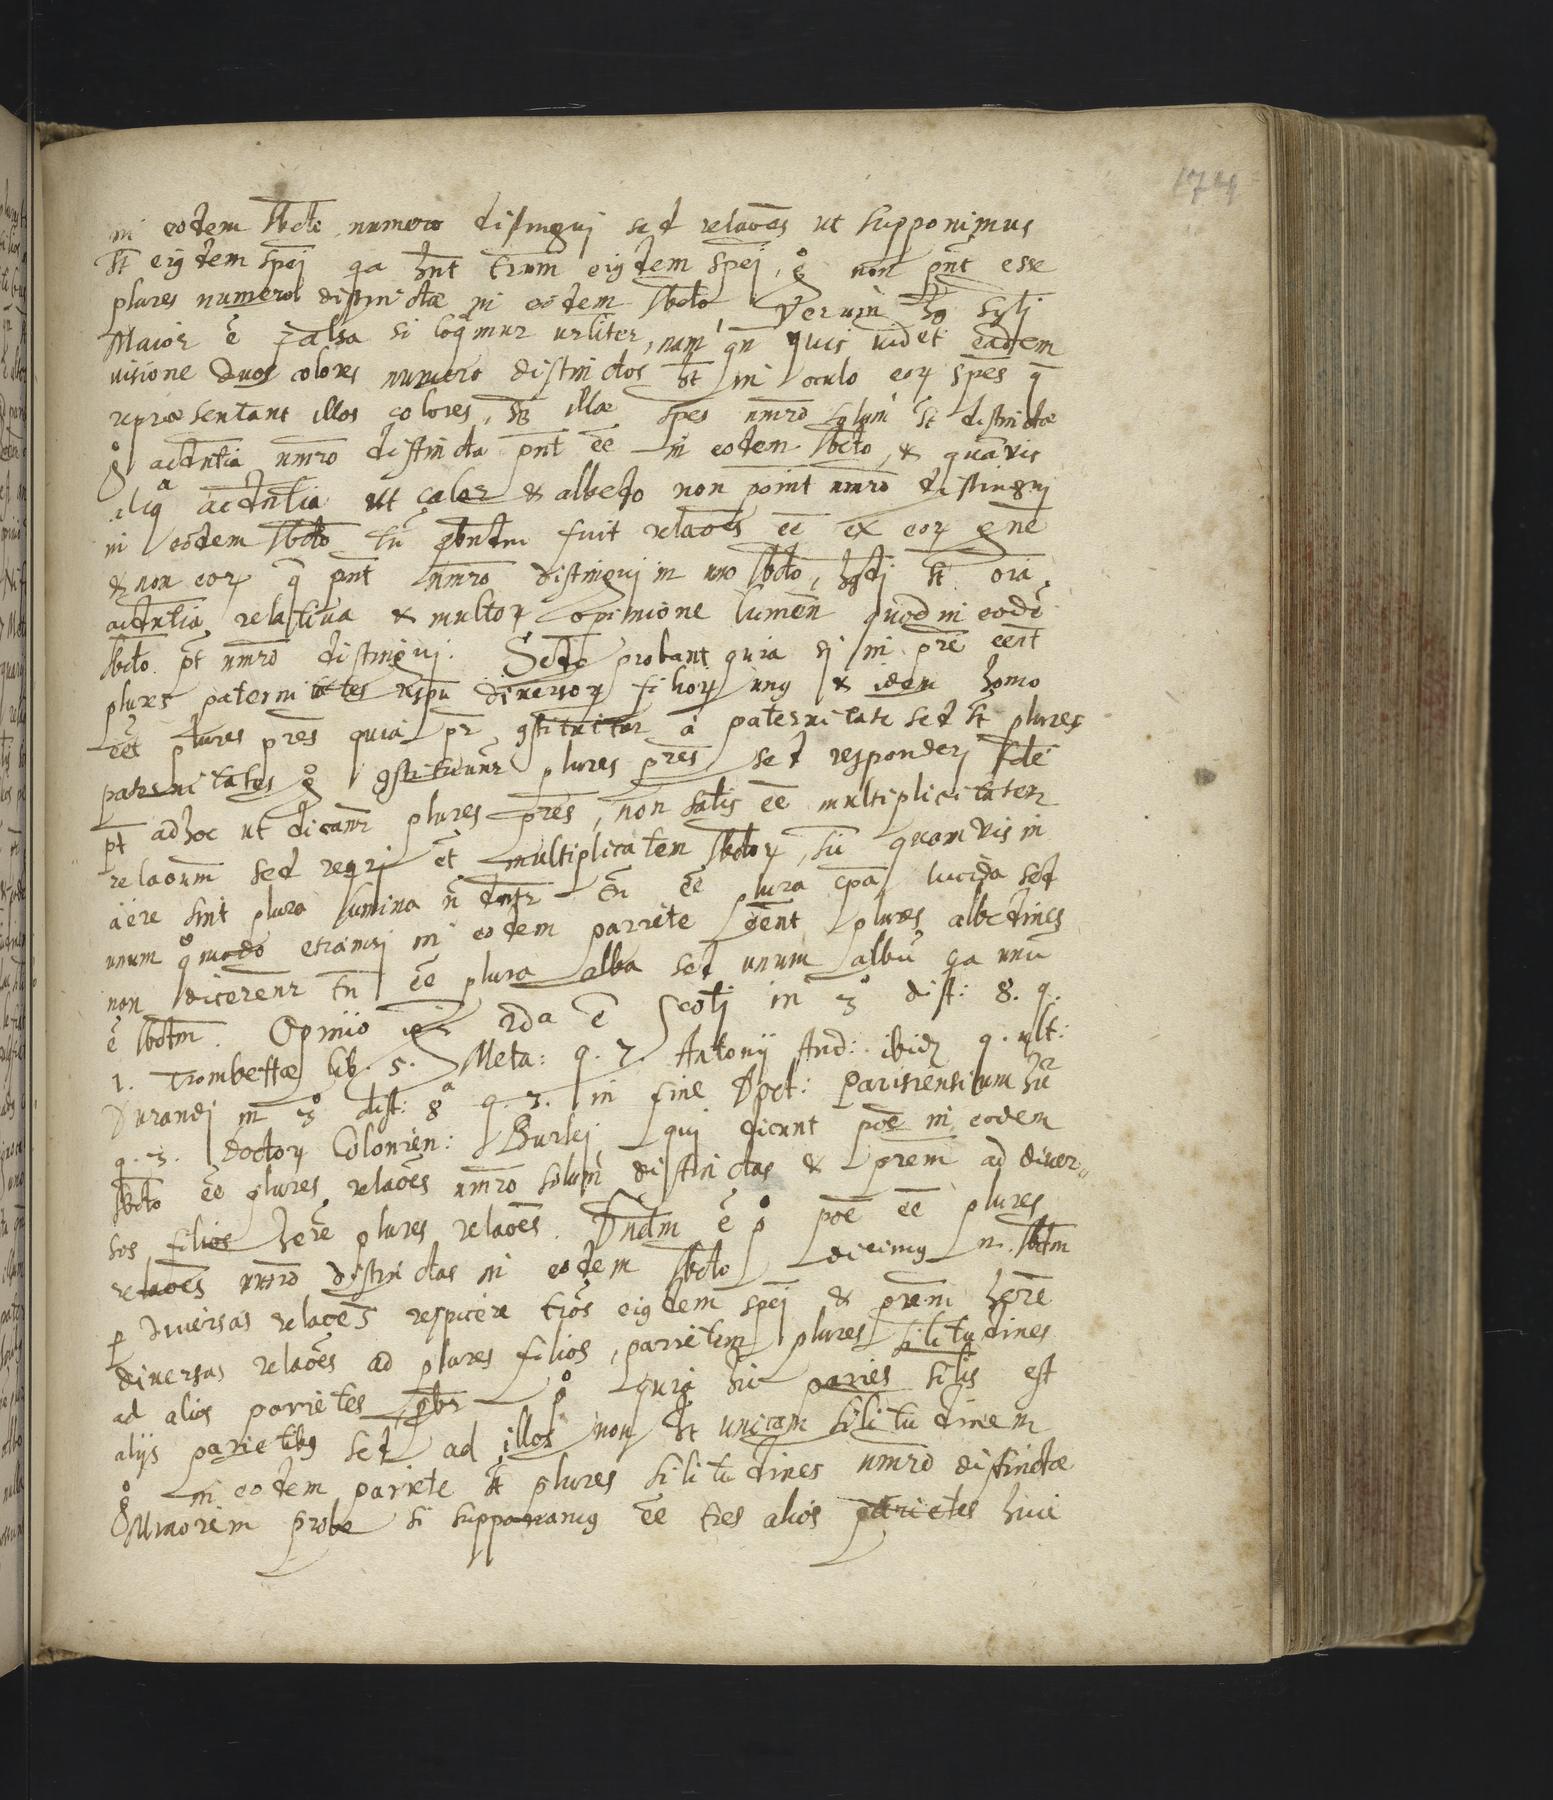 174
in eodem sbcto numero distingui sed relaoēs ut supponimus
st eiusdem spēi qa hnt trum eiusdem spēi, g° non pnt esse
plures numero distinctæ in eodem sbcto Verum hg sylj
Maior ē falsa si loqmur urliter, nam qn quis uidet eadem
uisione duos colores numero distinctos st in oculo eor spēs q
repræsentant illos colores, sz illæ spēs nmro solum st distinctæ
g° accdntia nmro distincta pnt ēē in eodem sbcto, & quāvis
aliqa accdntia ut calor & albedo non point nmro distingui
in eodem sbcto tn fuit relaoēs ēē ex eor gne
& non eor q pnt nmro distingui in uno sbcto, st oīa
accdntia relatiua & multor opinione lumen quod in eodē
sbcto pt nmro distingui. Secdo probant quia si in pre eent
plures paternitates respu diuersor filior unus & idem homo
eēt plures pres quia pr gstituitur a paternitate sed st plures
paternitates g° gstituunr plures pres sed responderj
pt ad hoc ut dicanr plures pres, non satis ēē multiplicitatem
relaoum sed reqri ēt multiplicatem sbctor, sic quamvis in
aëre sint plura lumina n̄ dntr tn ēē plura lucida sed
unum q°modo etiamsi in eodem pariete eent plures albedines
non dicerenr tn ēē plura alba sed unum albū qa unū
ē sbctm. Opinio 2da ē Scoti in 3° dist: 8. q.
1. Trombettæ lib. 5. Meta: q. 7. Antonij And: ibid q. ult:
Durandj in 3° dist: 8ª q. 3. in fine Doct: Parisiensium
q. 3. doctor Colonien: Burlej qui dicunt poē in eodem
sbcto ēē plures relaoēs nmro solum distinctas & prem ad diuer-
sos filios here plures relaoēs. Dndm ē p° poē ēē plures
relaoēs nmro distinctas in eodem sbcto dicimus n. sbctm
p diuersas relaoēs respicere trōs eiusdem spēi & prem here
diuersas relaoēs ad plures filios, parietem plures silitudines
ad alios parietes pbr p° quia hic paries silis est
alijs parietibus sed ad illos non ht unicam silitudinem
g° in eodem pariete st plures silitudines nmro distinctæ
Minorem probo si supponamus ēē tres alios parietes huic